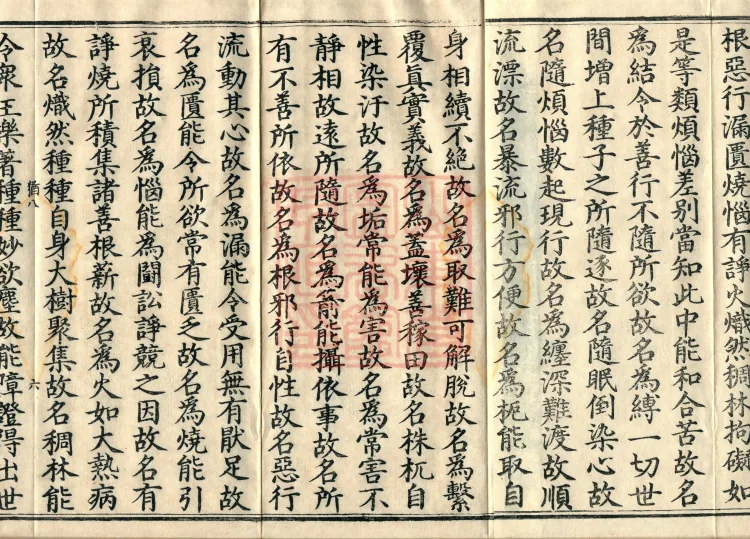 根惡行漏匱燒惱有諍火熾然稠林拘礙如
是等類煩惱差別當知此中能和合苦故名
為結令於善行不隨所欲故名為縛一切世
間增上種子之所隨逐故名隨眠倒染心故
名隨煩惱數起現行故名為纏深難渡故順
流漂故名暴流邪行方便故名為枙能取自
身相續不絕故名為取難可解脫故名為繫
覆真實義故名為蓋壞善稼田故名株杌自
性染汙故名為垢常能為害故名為常害不
靜相故遠所隨故名為箭能攝依事故名所
有不善所依故名為根邪行自性故名惡行
流動其心故名為漏能令受用無有猒足故
名為匱能令所欲常有匱乏故名為燒能引
衰損故名為惱能為鬪訟諍競之因故名有
諍燒所積集諸善根新故名為火如大熱病
故名熾然種種自身大樹聚集故名稠林能
猶八 六
令眾生樂著種種妙欲塵故能障證得出世